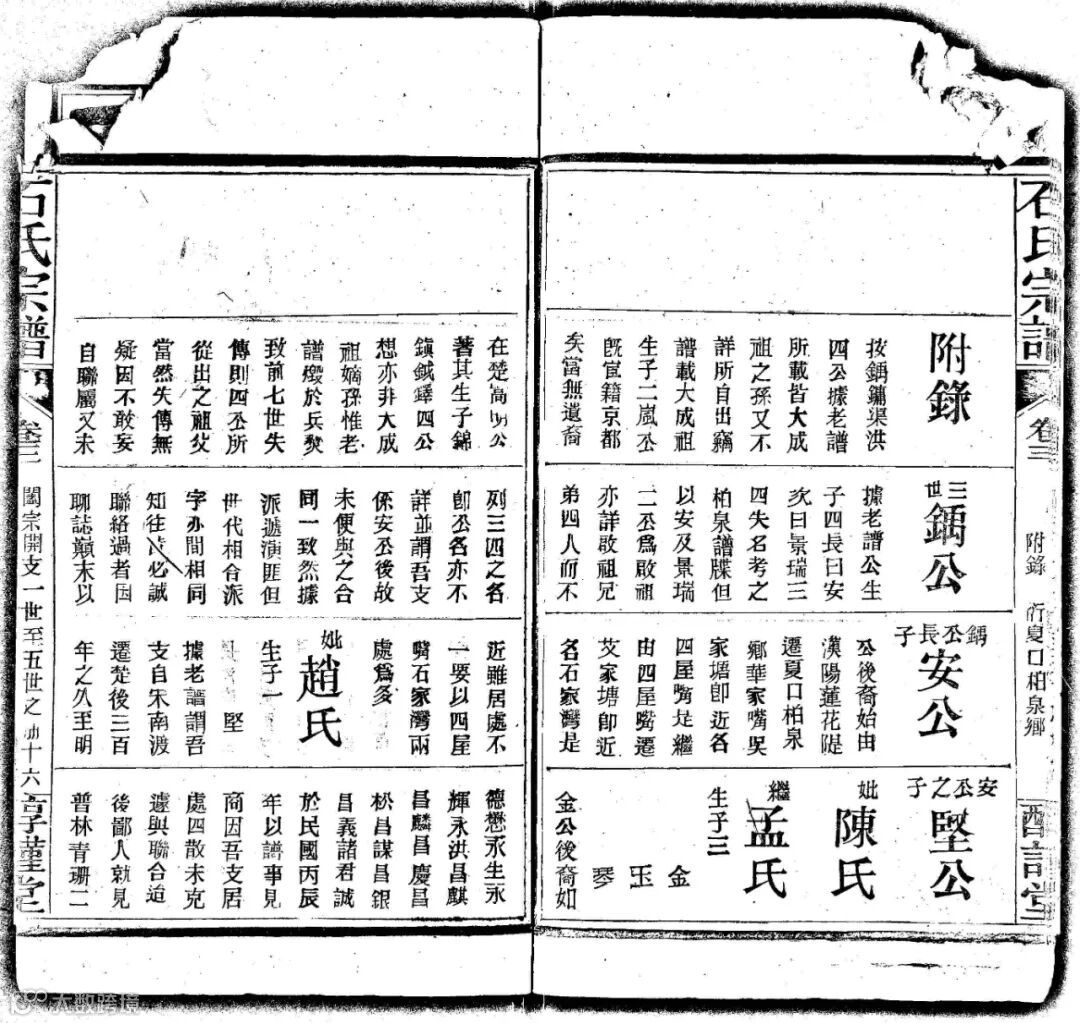 石氏宗譜
卷三
附錄
衍夏口柏泉鄉
附錄
按鍝鏞渠洪
四公據老譜
所載皆大成
祖之孫又不
詳所自出竊
譜載大成祖
生子二嵐公
旣宦籍京都
矣當無遺裔
在楚高明公
著其生子錦
鎮鉞鐸四公
想亦非大成
祖嫡孫惟老
譜燬於兵燹
致前七世失
傳則四公所
從出之祖父
當然失傳無
疑因不敢妄
自聯屬又未
三世
鍝公
據老譜公生
子四長曰安
次曰景瑞三
四失名考之
柏泉譜牒但
以安及景瑞
二公爲啟祖
亦詳啟祖兄
弟四人而不
列三四之名
卽公名亦不
詳並謂吾支
係安公後故
未便與之合
同一致然據
派遞演匪但
世代相合派
字亦間相同
知往昔必誠
聯絡過者因
聊誌顛末以
鍝公長子
安公
公後裔始由
漢陽蓮花隄
遷夏口柏泉
鄉華家嘴吳
家塘卽近名
四屋嘴是繼
由四屋嘴遷
艾家塘卽近
名石家灣是
近雖居處不
一要以四屋
嘴石家灣兩
處爲多
妣趙氏
生子一
堅
據老譜謂吾
支自宋南渡
遷楚後三百
年之久至明
安公之子
堅公
妣陳氏
繼孟氏
生子三
金
玉
琴
金公後裔如
德懋永生永
輝永洪昌麒
昌麟昌慶昌
松昌謀昌銀
昌義諸君誠
於民國丙辰
年以譜事見
商因吾支居
處四散未克
遽與聯合迨
後鄙人就見
普林青珊二
石氏宗譜
卷三
閤宗開支一世至五世之
十六
大数跨境